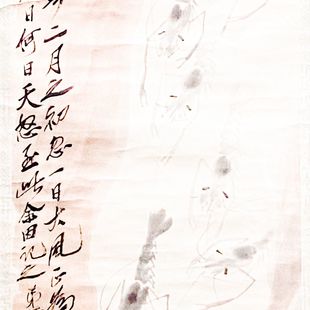 二月之初忽一日大風
日何日天怒至此余因記之